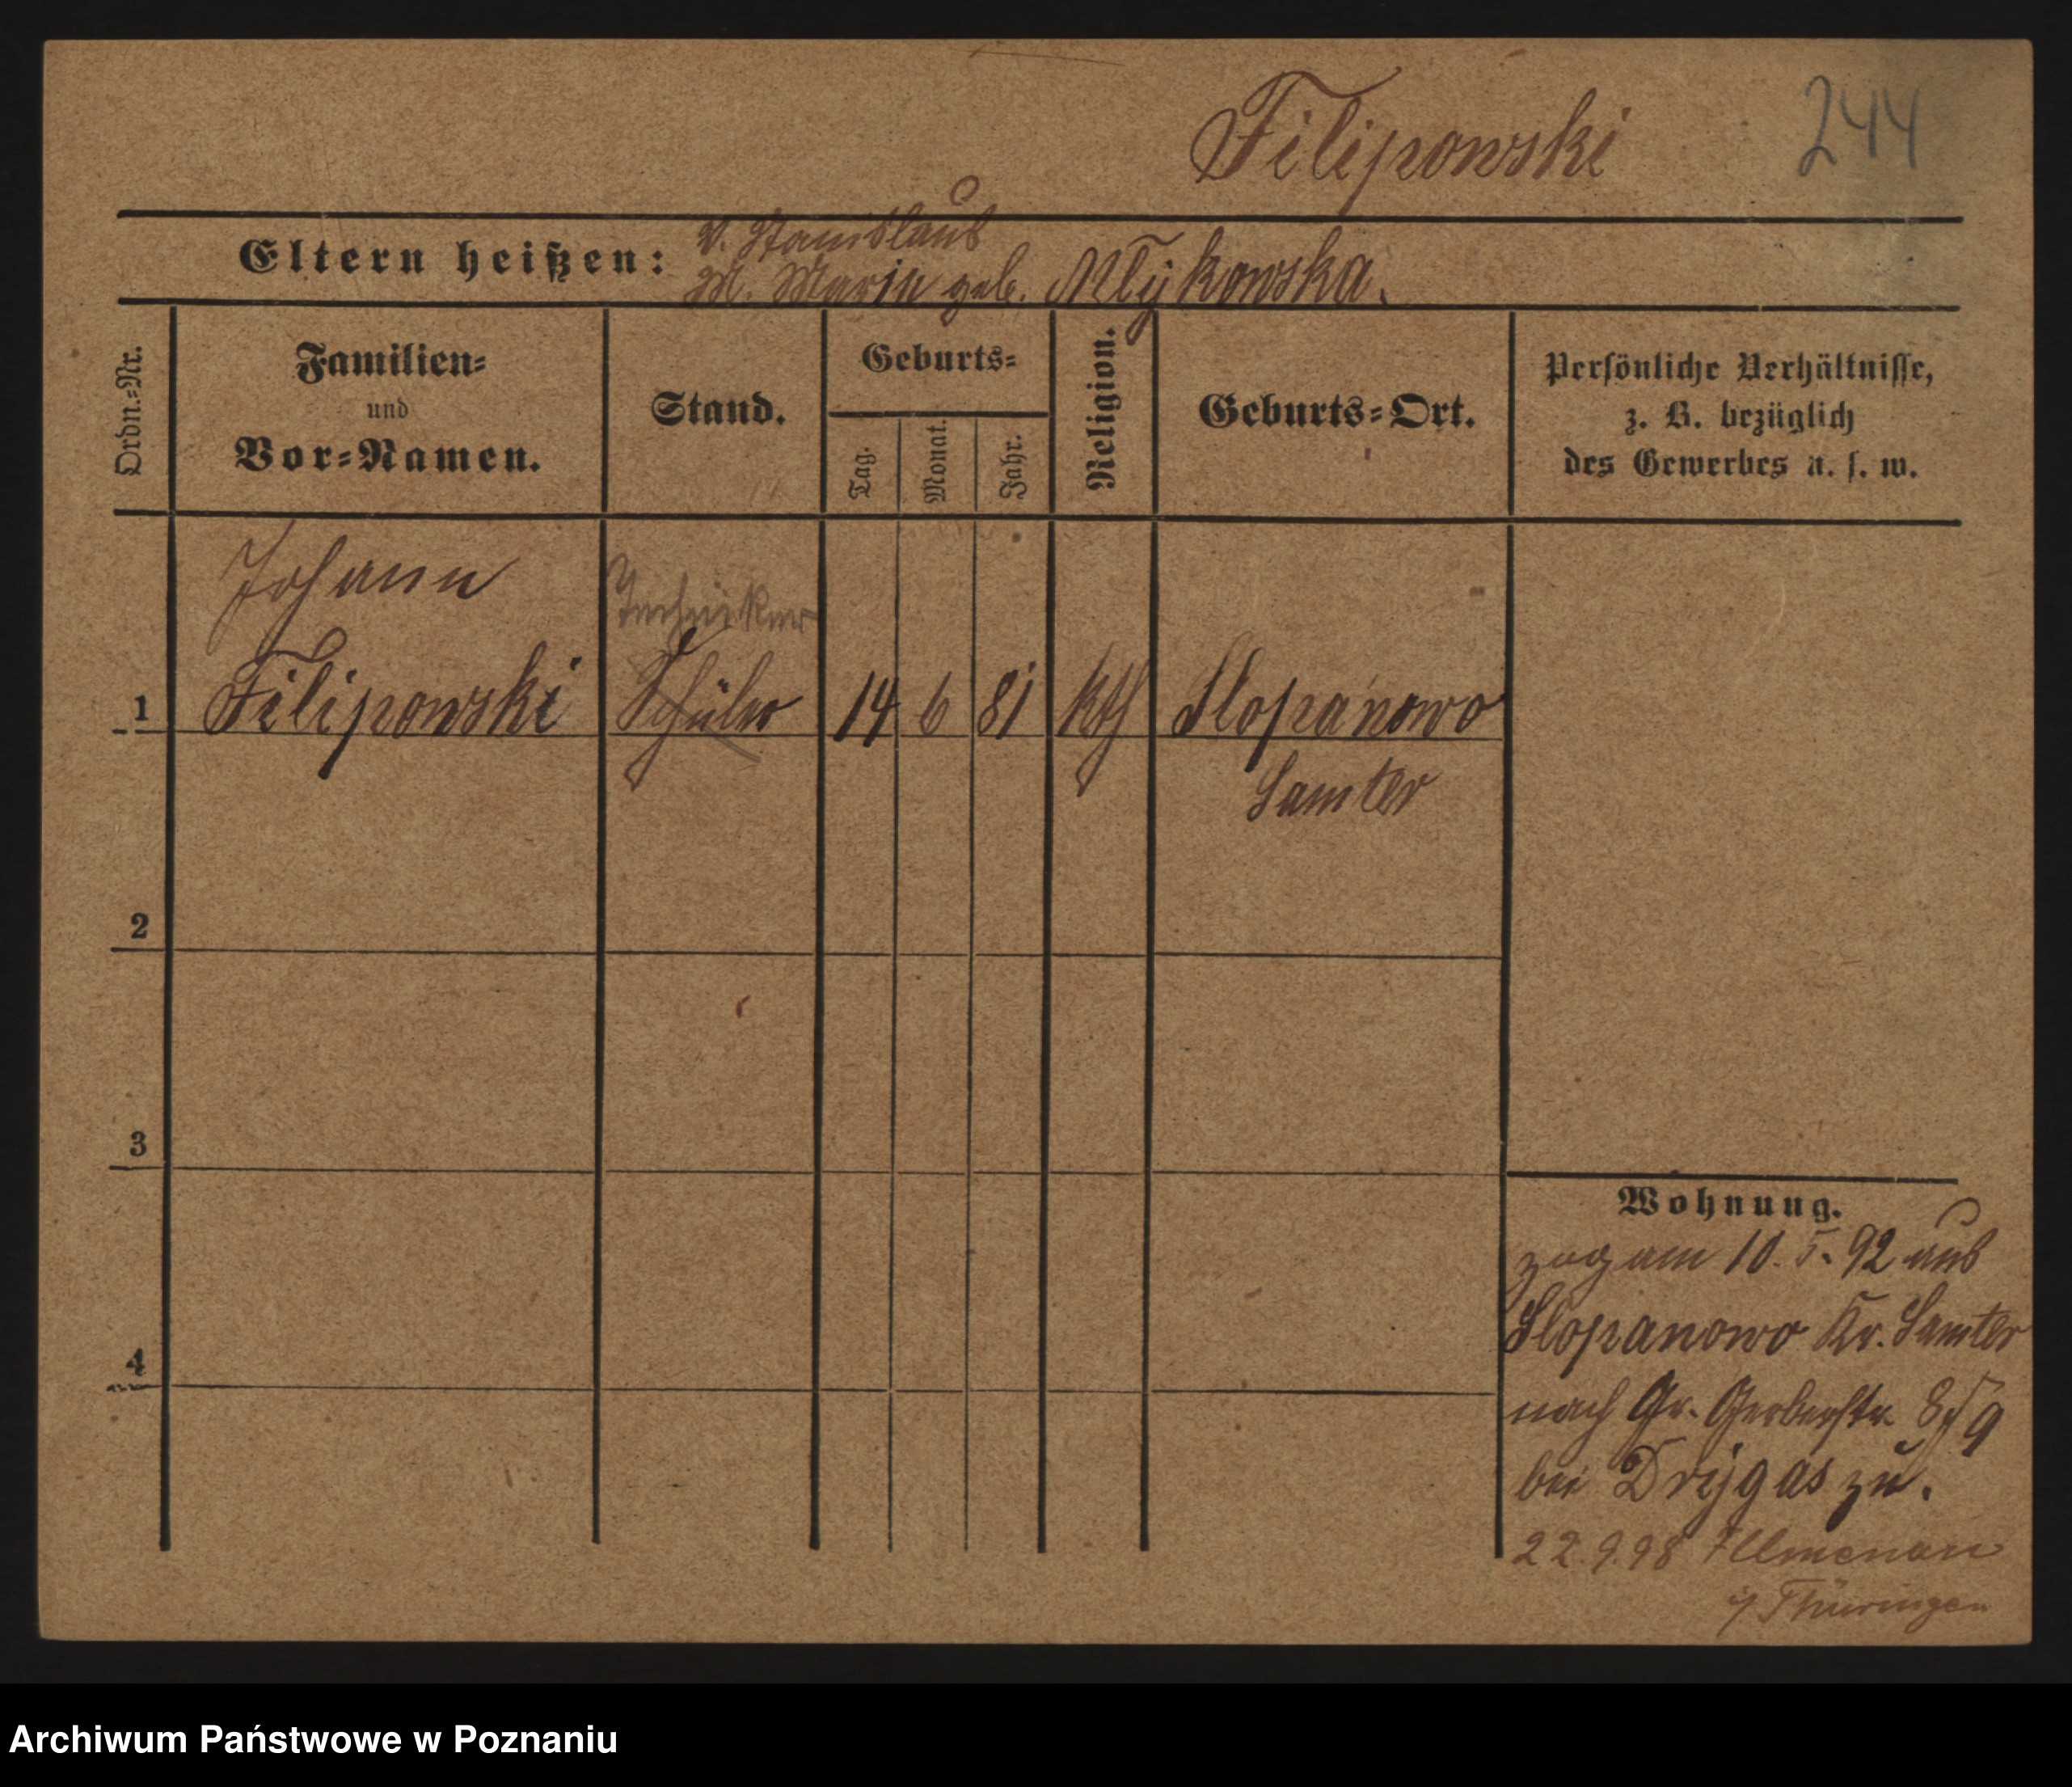 Filipowski 244
Eltern heißen: V. Stanislaus
M. Marie geb. Mlykowska.
Ordn.-Nr.
Familien-
und
Vor-Namen.
Stand.
Geburts-
Tag.
Monat.
Jahr.
Religion.
Geburts-Ort.
Persönliche Verhältnisse,
z. B. bezüglich
des Gewerbes u. s. w.
Johann
Techniker
1 Filipowski Schüler 14 6 81 kth Slopanowo
Samter
2
3
4
Wohnung.
zog am 10. 5. 92 aus
Slopanowo Kr. Samter
nach Gr. Gerberstr.
bei Drygas zu.
22.9.98 Illmenau
i/ Thüringen
Archiwum Państwowe w Poznaniu